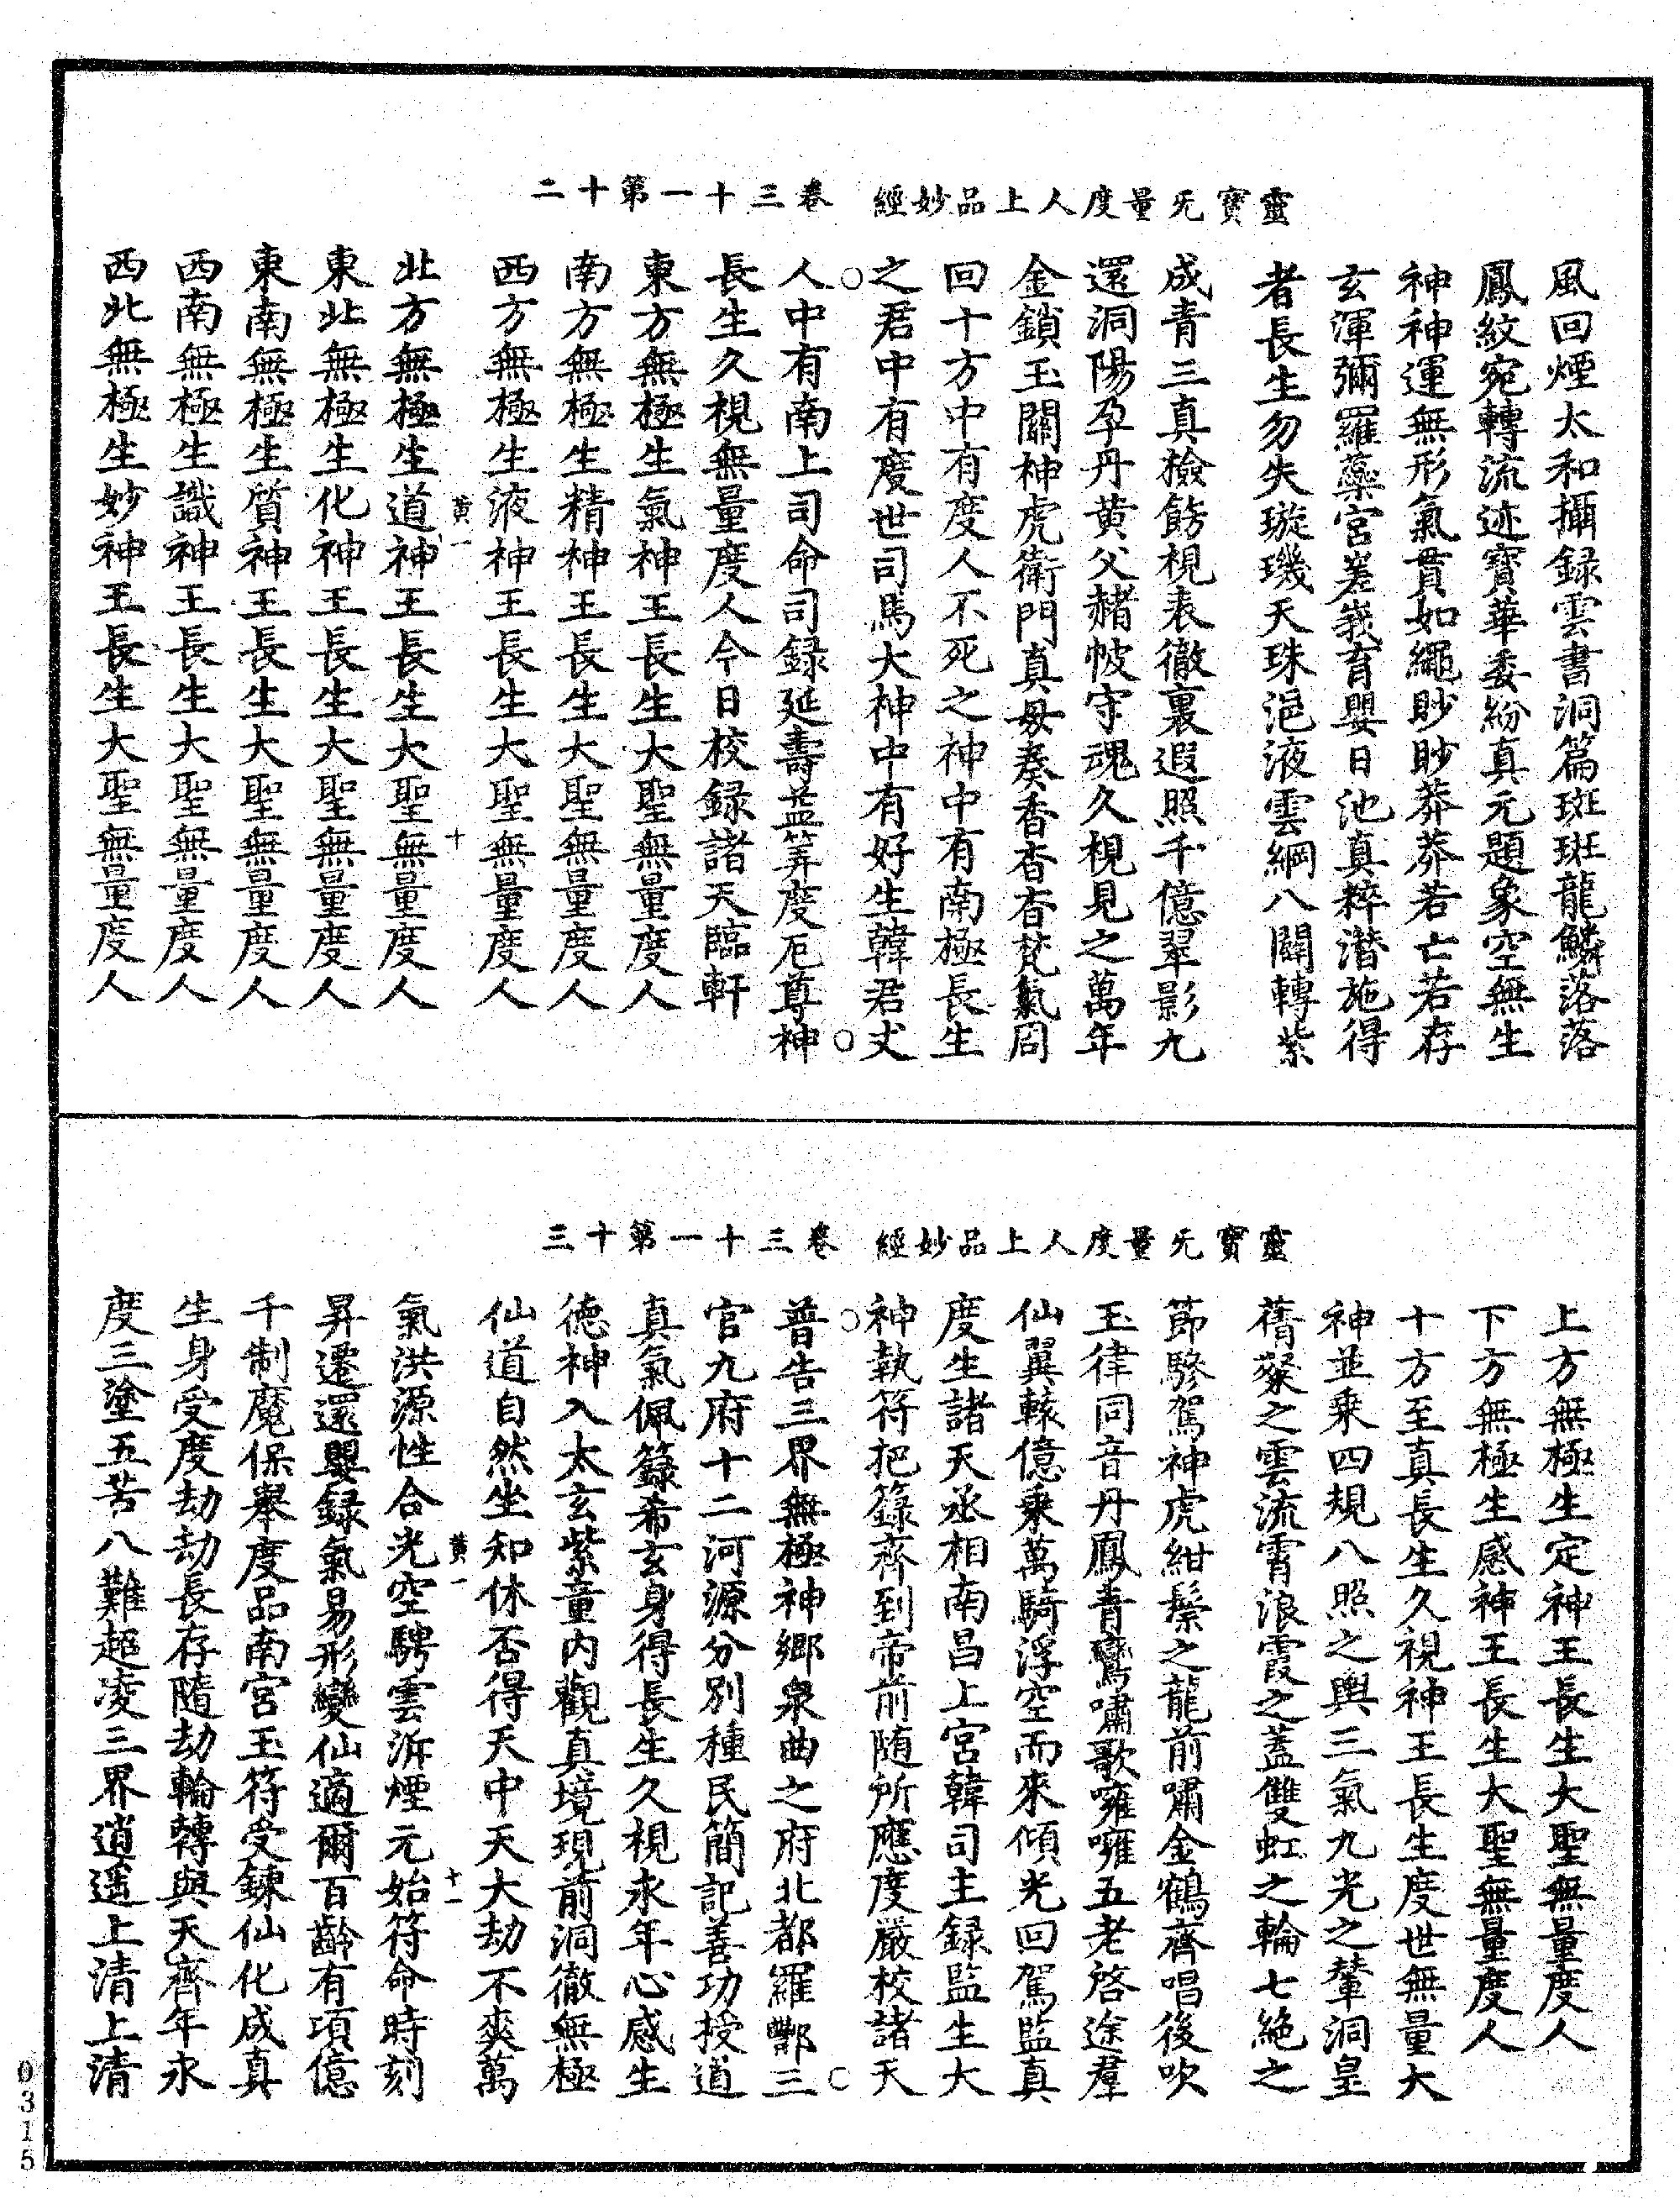 靈寶无量度人上品妙經　卷三十一第十二
風回煙太和攝録雲書洞篇斑斑龍鱗落落
鳳紋宛轉流迹寶華委紛真元題象空無生
神神運無形氣貫如繩眇眇莽莽若亡若存
玄渾彌羅蘂宮嵳峩育嬰日池真粹潛施得
者長生勿失璇璣天珠浥液雲綱八關轉紫
成青三真撿飭視表徹裏遐照千億翠影九
還洞陽孕丹黄父赭帔守魂久視見之萬年
金鎖玉關神虎衛門真母奏香杳杳梵氣周
回十方中有度人不死之神中有南極長生
之君中有度世司馬大神中有好生韓君丈
人中有南上司命司録延壽益筭度厄尊神
長生久視無量度人今日校録諸天臨軒
東方無極生氣神王長生大聖無量度人
南方無極生精神王長生大聖無量度人
西方無極生液神王長生大聖無量度人
黄一　十
北方無極生道神王長生大聖無量度人
東北無極生化神王長生大聖無量度人
東南無極生質神王長生大聖無量度人
西南無極生識神王長生大聖無量度人
西北無極生妙神王長生大聖無量度人
靈寶无量度人上品妙經　卷三十一第十三
上方無極生定神王長生大聖無量度人
下方無極生感神王長生大聖無量度人
十方至真長生久視神王長生度世無量大
神並乗四規八照之輿三氣九光之輦洞皇
蒨粲之雲流霄浪霞之蓋雙虹之輪七絶之
節驂駕神虎紺鬃之龍前嘯金鶴齊唱後吹
玉律同音丹鳳青鸞嘯歌嗈嗈五老啓途羣
仙翼轅億乗萬騎浮空而來傾光回駕監真
度生諸天丞相南昌上宮韓司主録監生大
神執符把籙齊到帝前随所應度嚴校諸天
普告三界無極神鄉泉曲之府北都羅酆三
官九府十二河源分别種民簡記善功授道
真氣佩籙希玄身得長生久視永年心感生
德神入太玄紫童内觀真境現前洞徹無極
仙道自然坐知休否得天中天大劫不奭萬
黄一　十一
氣洪源性合光空騁雲泝煙元始符命時刻
昇遷還嬰録氣易形變仙適爾百齡有項億
千制魔保舉度品南宮玉符受錬仙化成真
生身受度劫劫長存隨劫輪轉與天齊年永
度三塗五苦八難超凌三界逍遥上清上清
0315